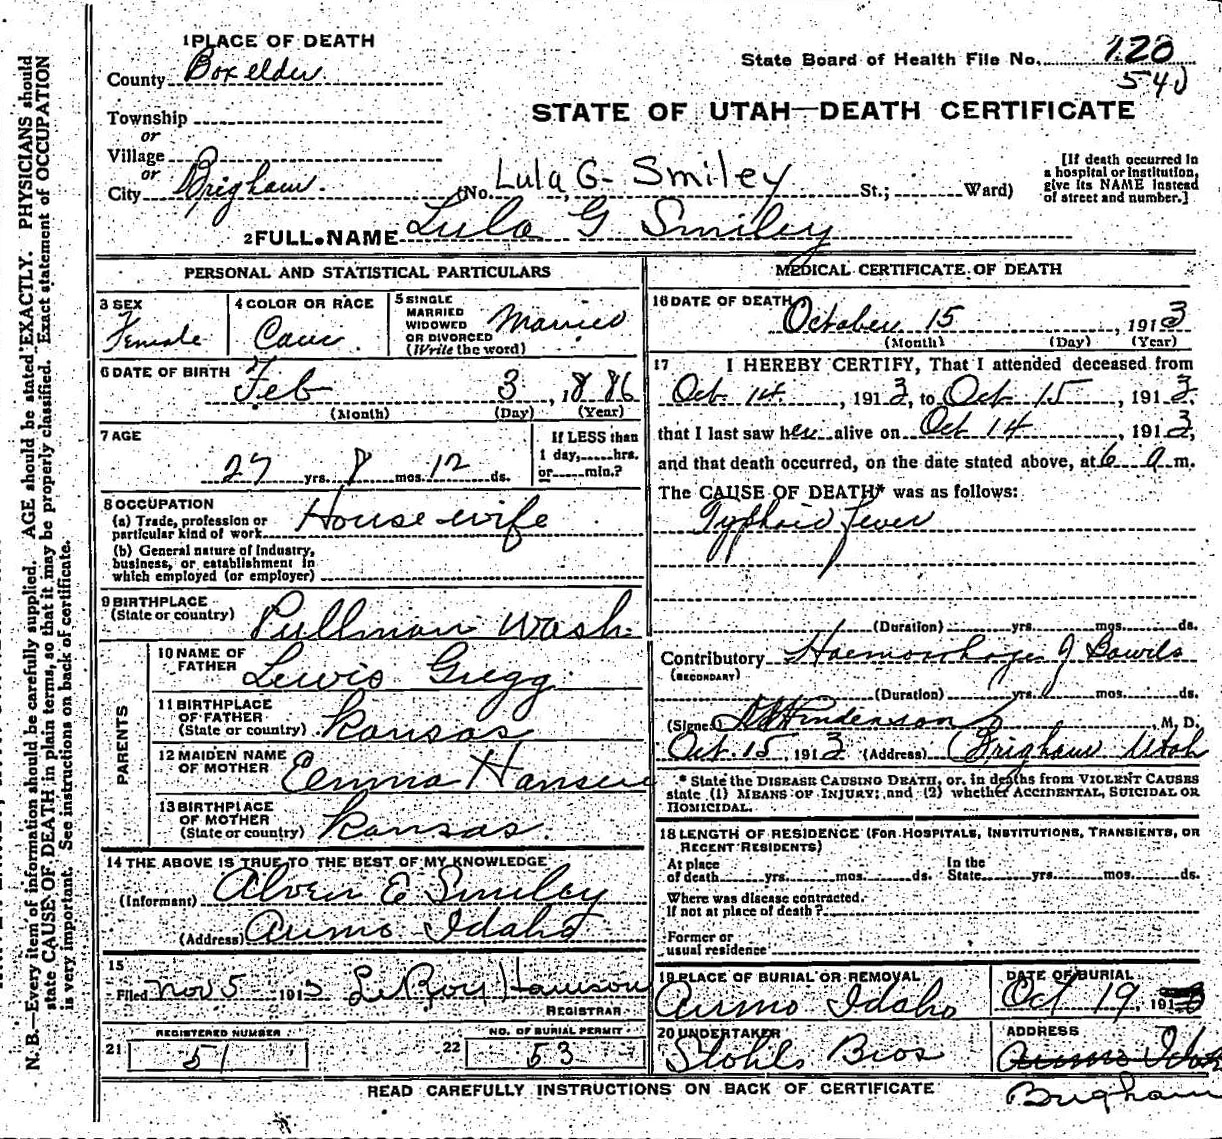 1 PLACE OF DEATH
County Boxelder
State Board of Health File No. 120
540
STATE OF UTAH—DEATH CERTIFICATE
Township
or
Village
or
City Brigham. (No. Lula G- Smiley St.; Ward)
[If death occurred in
a hospital or institution,
give its NAME instead
of street and number.]
2 FULL NAME Lula G Smiley
PERSONAL AND STATISTICAL PARTICULARS
3 SEX
Female
4 COLOR OR RACE
Cauc.
5 SINGLE
MARRIED
WIDOWED
OR DIVORCED
(Write the word)
Married
6 DATE OF BIRTH
Feb 3, 1886
(Month) (Day) (Year)
7 AGE
27 yrs. 8 mos. 12 ds.
If LESS than
1 day, hrs.
or min.?
8 OCCUPATION
(a) Trade, profession or
particular kind of work Housewife
(b) General nature of Industry,
business, or establishment in
which employed (or employer)
9 BIRTHPLACE
(State or country) Pullman Wash.
PARENTS
10 NAME OF
FATHER Lewis Gregg
11 BIRTHPLACE
OF FATHER
(State or country) Kansas
12 MAIDEN NAME
OF MOTHER Emma Hansen
13 BIRTHPLACE
OF MOTHER
(State or country) Kansas.
14 THE ABOVE IS TRUE TO THE BEST OF MY KNOWLEDGE
(Informant) Alven E Smiley
(Address) Arimo Idaho
15
Filed Nov 5 1913 LeRoy Harrison
REGISTRAR
REGISTERED NUMBER
21 51
NO. OF BURIAL PERMIT
22 53
MEDICAL CERTIFICATE OF DEATH
16 DATE OF DEATH
October 15, 1913
(Month) (Day) (Year)
17 I HEREBY CERTIFY, That I attended deceased from
Oct 14, 1913, to Oct 15, 1913,
that I last saw her alive on Oct 14, 1913,
and that death occurred, on the date stated above, at 6 a m.
The CAUSE OF DEATH* was as follows:
Typhoid fever
(Duration) yrs. mos. ds.
Contributory Haemorrhage of Bowels
(SECONDARY)
(Duration) yrs. mos. ds.
(Signed) M. D.
Oct. 15, 1913 (Address) Brigham Utah
* State the DISEASE CAUSING DEATH, or, in deaths from VIOLENT CAUSES
state (1) MEANS OF INJURY; and (2) whether ACCIDENTAL, SUICIDAL OR
HOMICIDAL.
18 LENGTH OF RESIDENCE (FOR HOSPITALS, INSTITUTIONS, TRANSIENTS, OR
RECENT RESIDENTS)
At place
of death yrs. mos. ds.
In the
State yrs. mos. ds.
Where was disease contracted.
If not at place of death?
Former or
usual residence
19 PLACE OF BURIAL OR REMOVAL
Arimo Idaho
DATE OF BURIAL
Oct 19, 1913
20 UNDERTAKER
Stohls Bros
ADDRESS
Arimo Idaho
Brigham
READ CAREFULLY INSTRUCTIONS ON BACK OF CERTIFICATE
N. B.—Every item of information should be carefully supplied. AGE should be stated EXACTLY. PHYSICIANS should
state CAUSE OF DEATH in plain terms, so that it may be properly classified. Exact statement of OCCUPATION
is very important. See instructions on back of certificate.